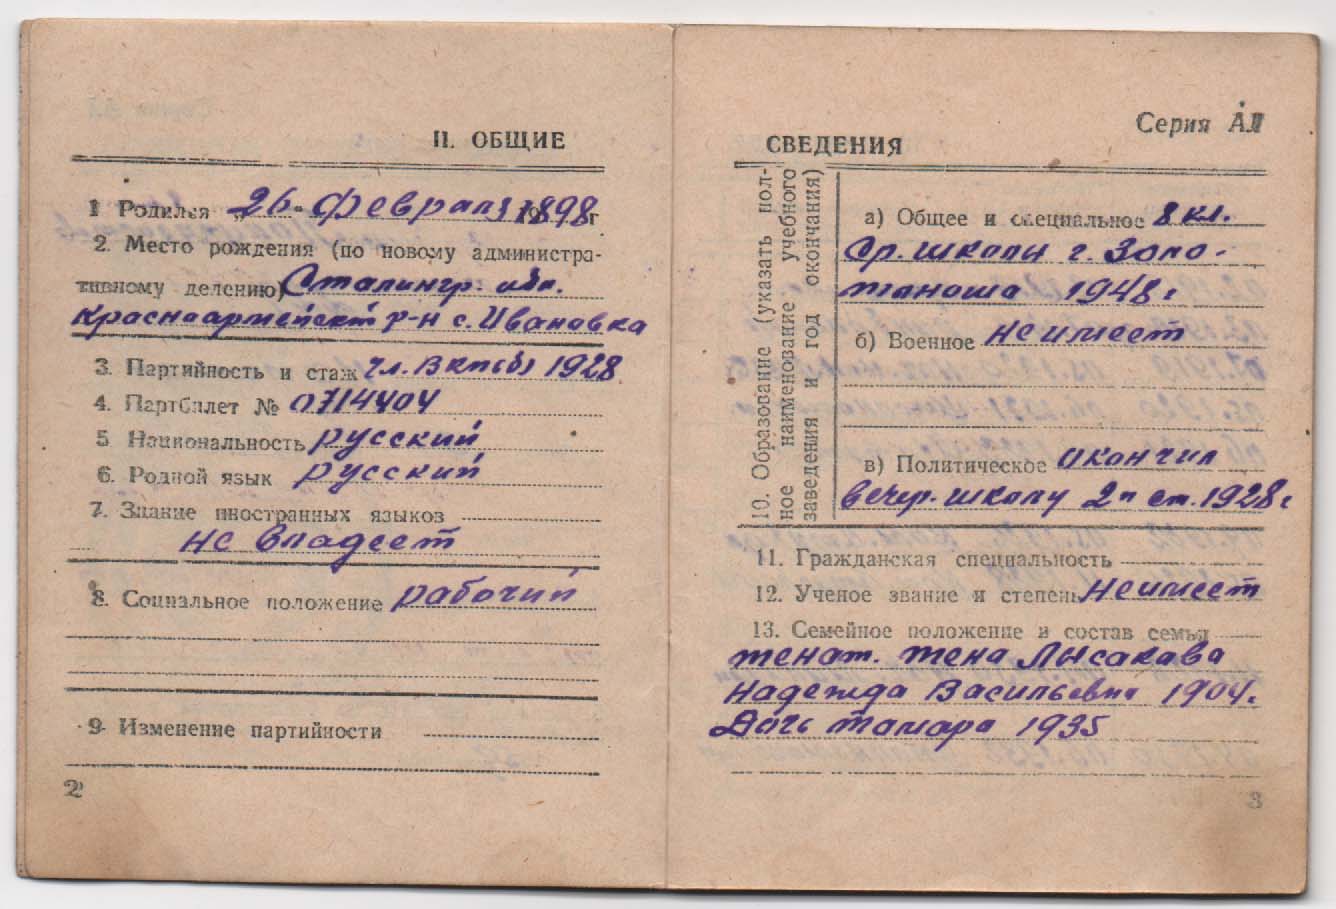 II. ОБЩИЕ
1 Родился „26“ февраля 1898 г
2. Место рождения (по новому администра-
тивному делению) Сталингр. обл.
Красноармейский р-н с. Ивановка
3. Партийность и стаж чл. ВКП(б) 1928
4. Партбилет № 0714404
5 Национальность русский
6. Родной язык русский
7. Знание иностранных языков
не владеет
8. Социальное положение рабочий
9. Изменение партийности
2
Серия АЛ
СВЕДЕНИЯ
10. Образование (указать пол-
ное наименование учебного
заведения и год окончания)
а) Общее и специальное 8 кл.
Ср. школы г. Золо-
тоноша 1948 г
б) Военное Не имеет
в) Политическое окончил
вечер. школу 2й ст. 1928 г
11. Гражданская специальность
12. Ученое звание и степень Не имеет
13. Семейное положение и состав семьи
женат. жена Лысакова
Надежда Васильевна 1904.
Дочь Тамара 1935
3